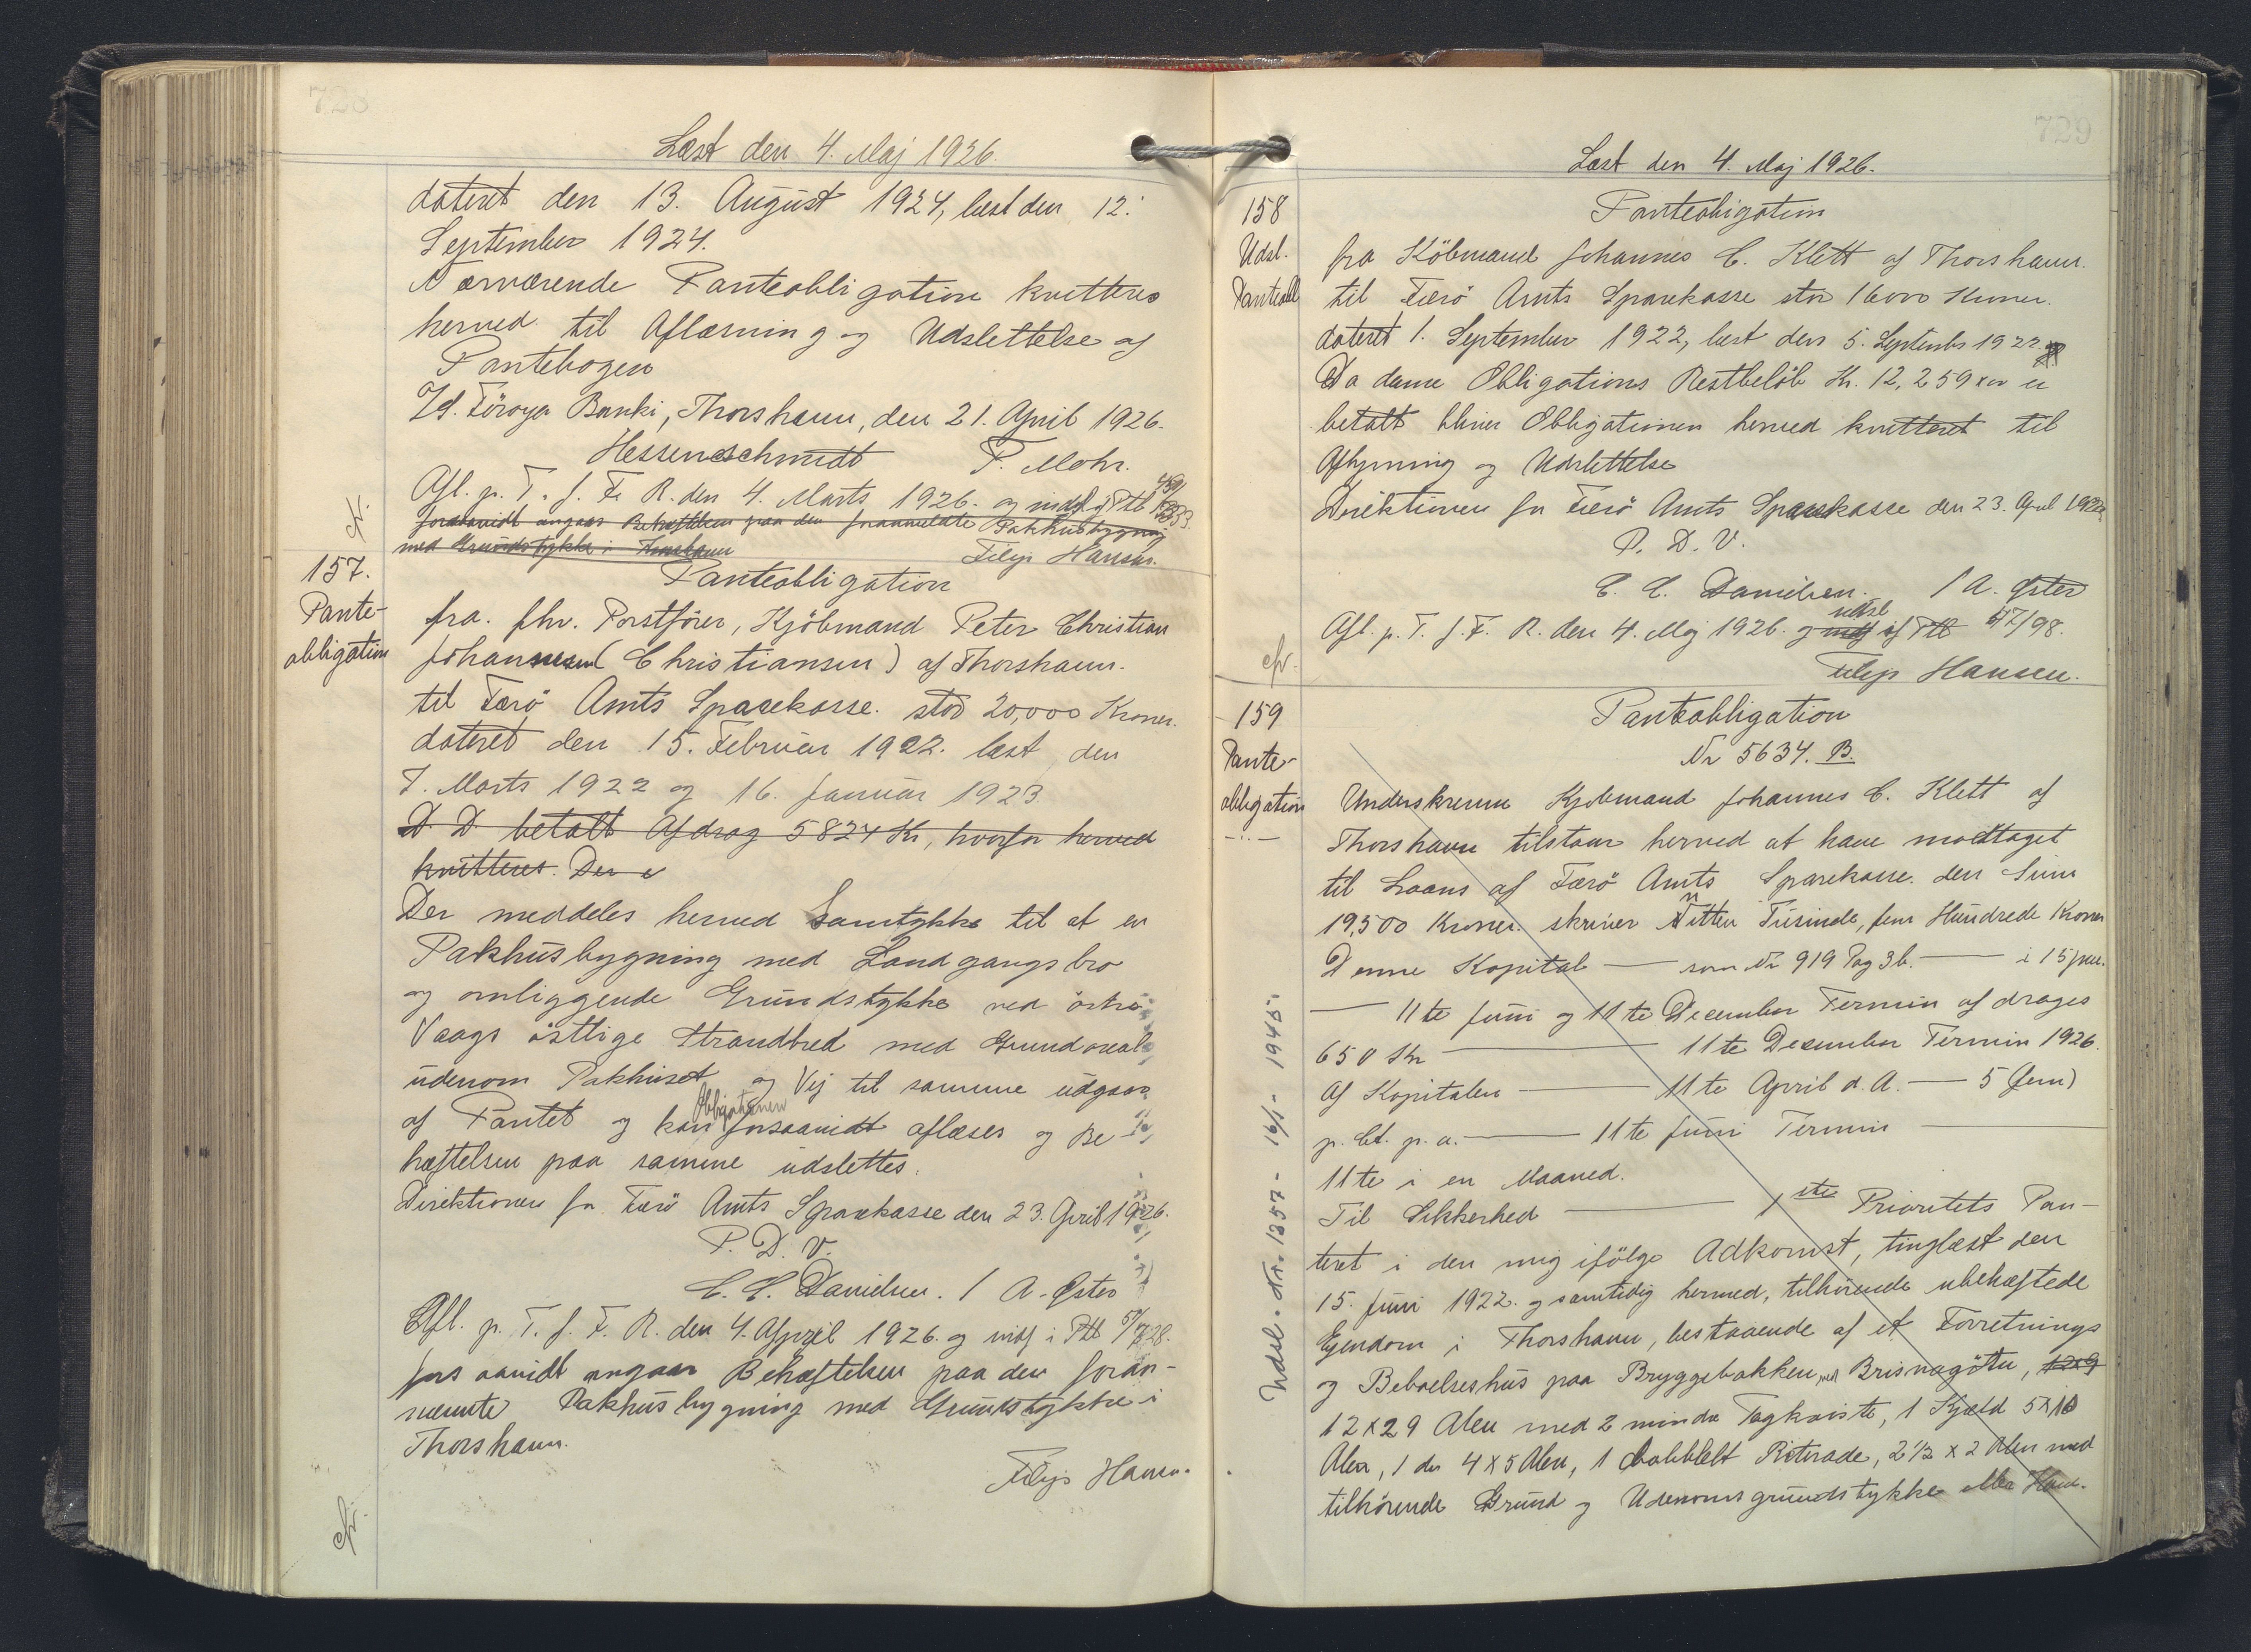 728
Læst den 4. Maj 1926.
dateret den 13. August 1924, læst den 12.
September 1924.
Nærværende Panteobligation kvitteres
herved til Aflæsning og Udslettelse af
Pantebogen
Föroya Banki, Thorshavn, den 21. April 1926.
Hessenschmidt P. Mohr.
Afl. p. T. f. F. R. den 4. Marts 1926. og
forsaavidt angaar Behæftelsen paa den forannævnte Pakhusbygning
med Grundstykke i Thorshavn
Filip Hansen.
cfr.
157.
Pante-
obligation
Panteobligation
fra. fhv. Postfører, Kjöbmand Peter Christian
Johannesen (Christiansen) af Thorshavn.
til Færö Amts Sparekasse. stor 20,000 Kroner.
dateret den 15. Februar 1922. læst den
7. Marts 1922 og 16. Januar 1923.
D. D. betalt Afdrag 5824 Kr, hvorfor herved
kvitteres. Der
Der meddeles herved Samtykke til at en
Pakhusbygning med Landgangsbro
og omliggende Grundstykke ved östre
Vaags östlige Strandbred med Grundareal
udenom Pakhuset og Vej til samme udgaar
af Pantet og kan Obligationen forsaavidt aflæses og Be-
hæftelsen paa samme udslettes.
Direktionen for Færö Amts Sparekasse den 23. April 1926.
P. D. V.
C. C. Danielsen. / A. Öster
Afl. p. T. f. F. R. den 4. April 1926. og indf i Ptb
forsaavidt angaar Behæftelsen paa den foran-
nævnte Pakhusbygning med Grundstykke i
Thorshavn.
Filip Hansen.
cfr.
729
Læst den 4. Maj 1926.
158
Udsl.
Panteobl
Panteobligation
fra Köbmand Johannes C. Klett af Thorshavn.
til Færö Amts Sparekasse stor 16000 Kroner.
dateret 1. September 1922, læst den 5. September 1922.
Da denne Obligations Restbelöb Kr. 12,259 er
betalt bliver Obligationen herved kvitteret til
Aflysning og Udslettelse
Direktionen for Færö Amts Sparekasse den 23. April 1926
P. D. V.
C. C. Danielsen. / A. Öster
Afl. p. T. f. F. R. den 4. Maj 1926. og udsl af Ptb 47/98.
Filip Hansen.
cfr.
159
Pante-
obligation
Panteobligation
Nr 5634. B.
Underskrevne Kjöbmand Johannes C. Klett af
Thorshavn tilstaar herved at have modtaget
til Laans af Færö Amts Sparekasse. den Sum
19,500 Kroner. skriver Nitten Tusinde, fem Hundrede Kroner
Denne Kapital — som Nr 919 Pag 36. — i 15
— 11te Juni og 11te December Termin afdrages
650 Kr — 11te December Termin 1926.
Af Kapitalen — 11te April d. A. — 5 (fem)
p. Ct. p. a. — 11te Juni Termin —
11te i en Maaned.
Til Sikkerhed — 1ste Prioritets Pan-
teret i den mig ifölge Adkomst, tinglæst den
15. Juni 1922. og samtidig hermed, tilhörende ubehæftede
Ejendom i Thorshavn, bestaaende af et Forretnings
og Beboelseshus paa Bryggebakken, ved Brisnagöttu, 12x9
12 x 29 Alen med 2 mindre Tagkviste, 1 Kjæld 5 x 10
Alen, 1 do 4 x 5 Alen, 1 dobbelt Retirade, 2½ x 2 Alen med
tilhörende Grund og Udenomsgrundstykke eller Have.
Udsl. Nr. 1357 - 16/1 - 1945.